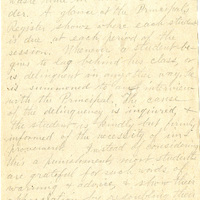 der. A glance at the Principal's
Register shows where each student
is due at each period of the
session. Whenever a student be-
gins to lag behind his class, or
is delinquent in any other way, he
is summoned to an interview
with the Principal. The cause
of the delinquency is inquired, &
the student is kindly but firmly
informed of the necessity of im-
provement. Instead of considering
this a punishment, most students
are grateful for such words of
warning & advice, & show their
appreciation